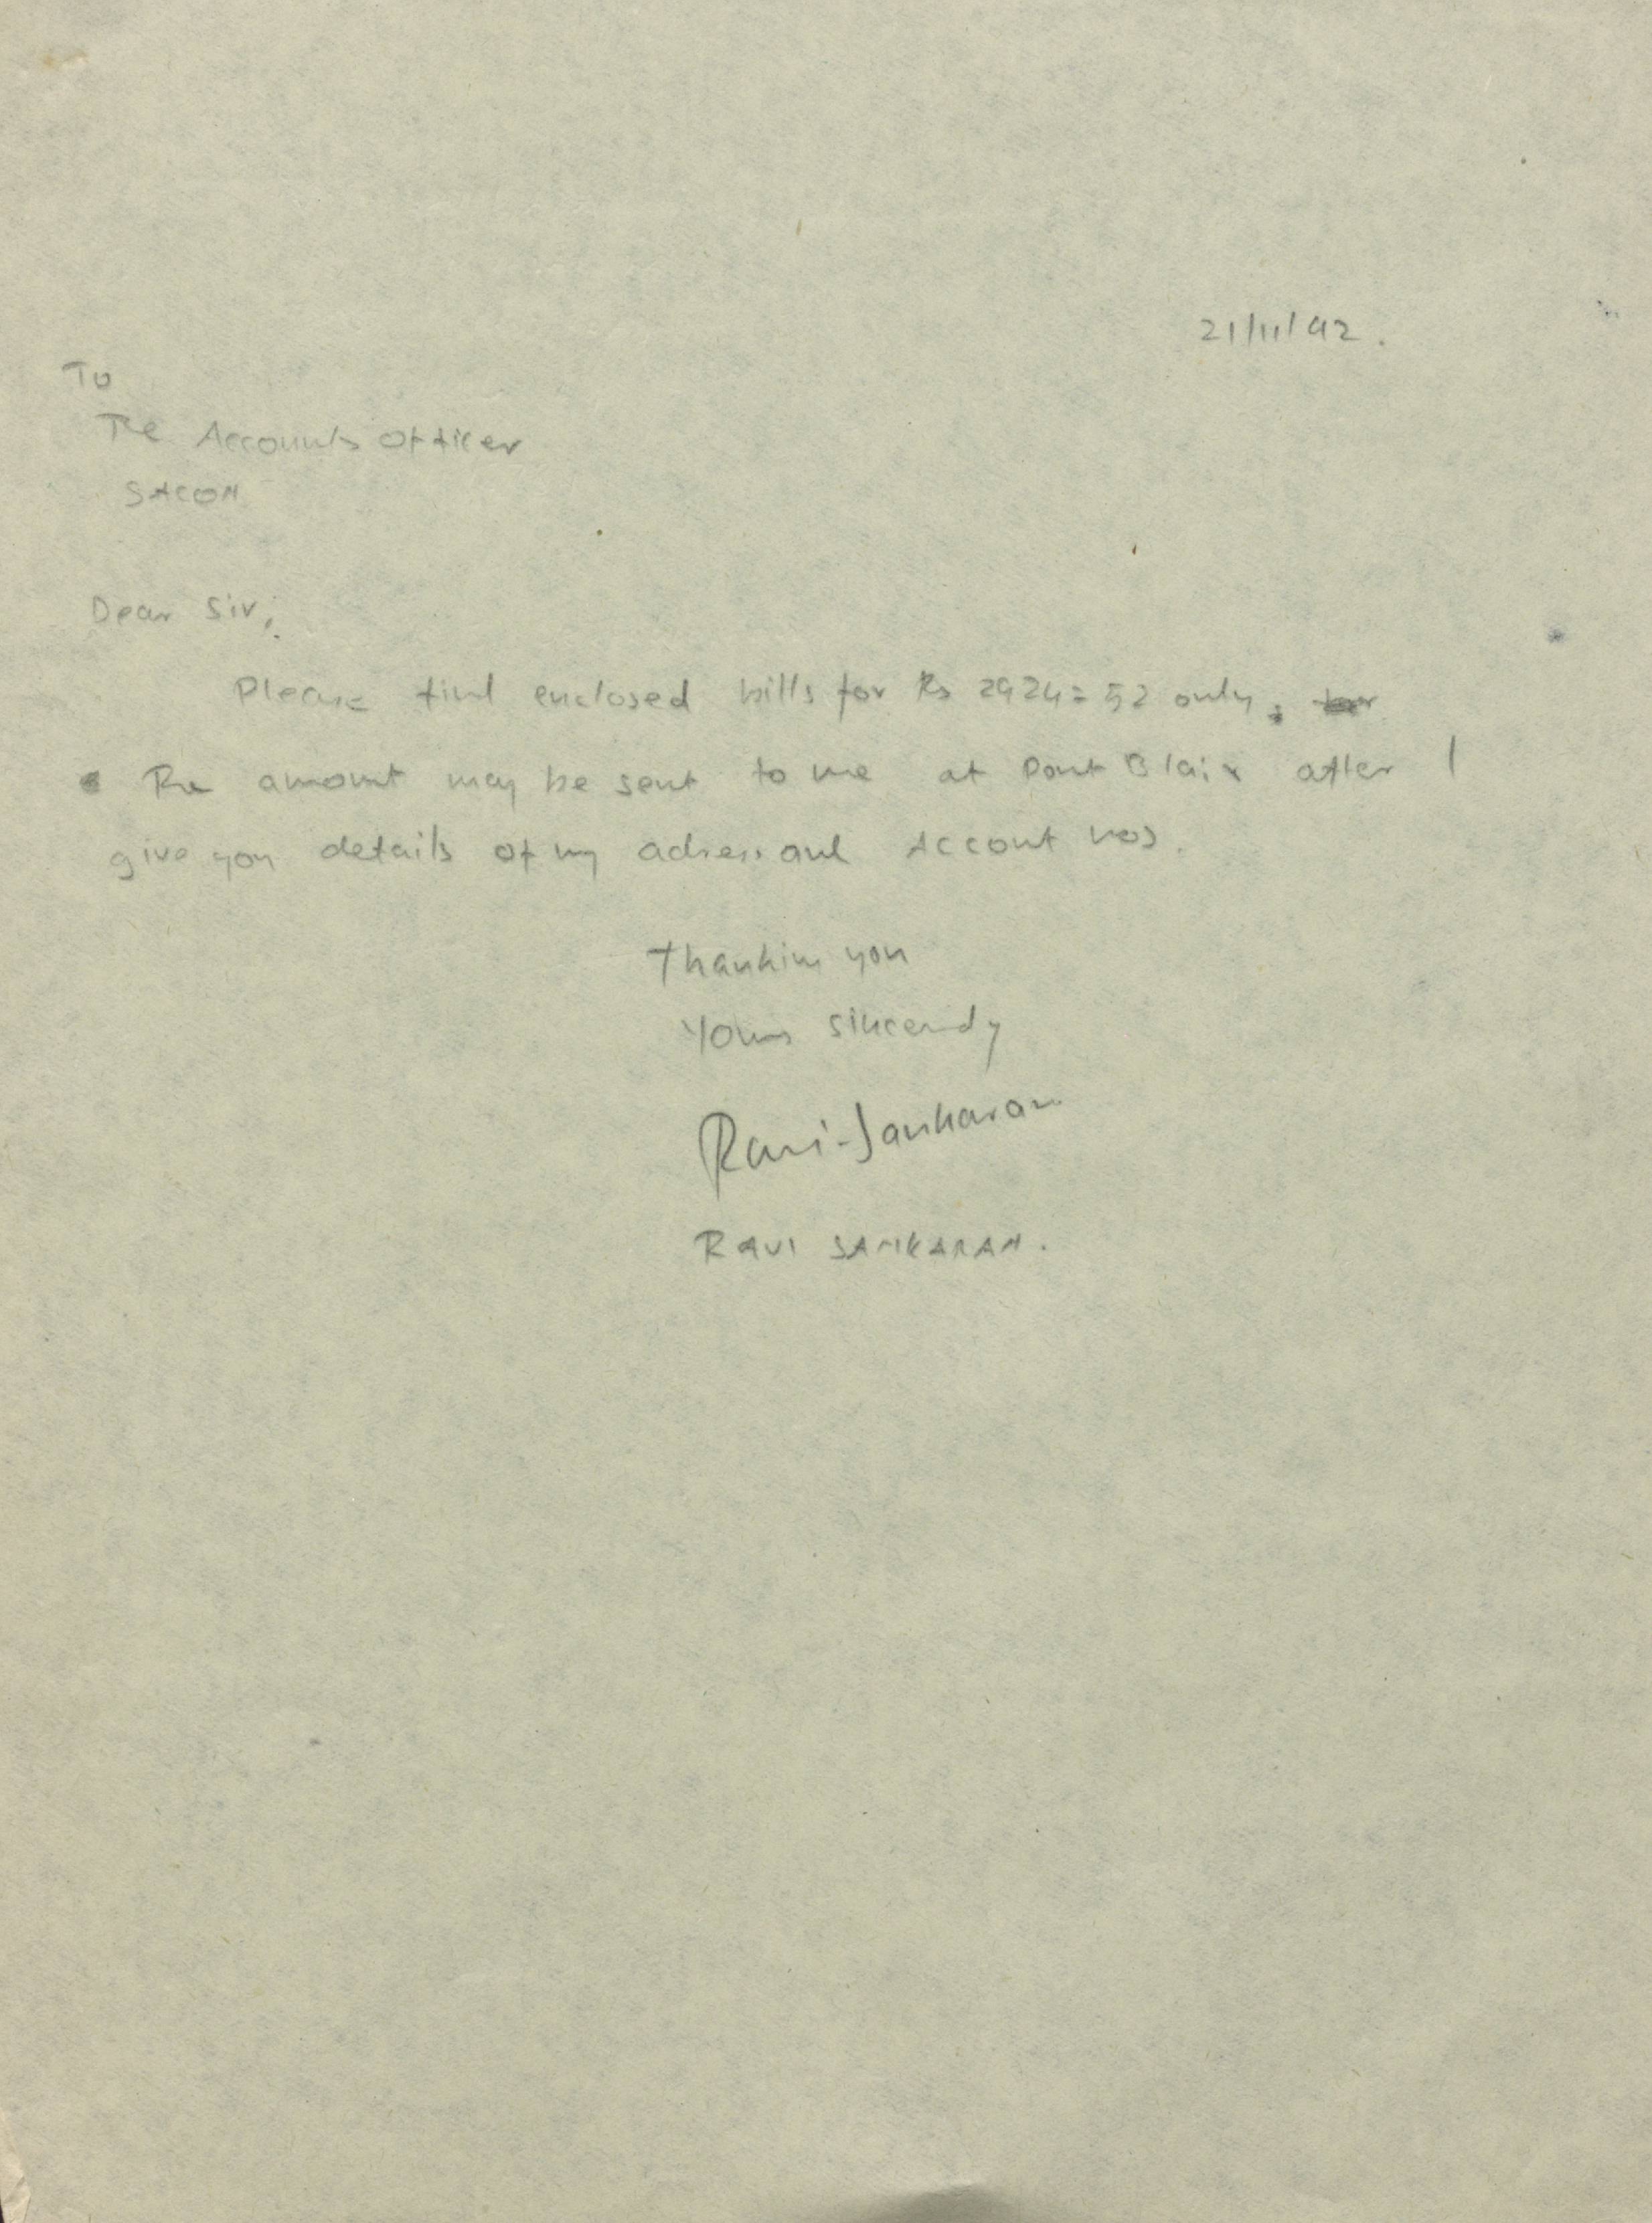 21/11/92.
To
The Accounts Officer
SACON
Dear Sir,
Please find enclosed bills for Rs 2924=52 only.
The amount may be sent to me at Port Blair after I
give you details of my adress and Account nos.
Thanking you
Yours sincerely
Ravi Sankaran
RAVI SANKARAN.